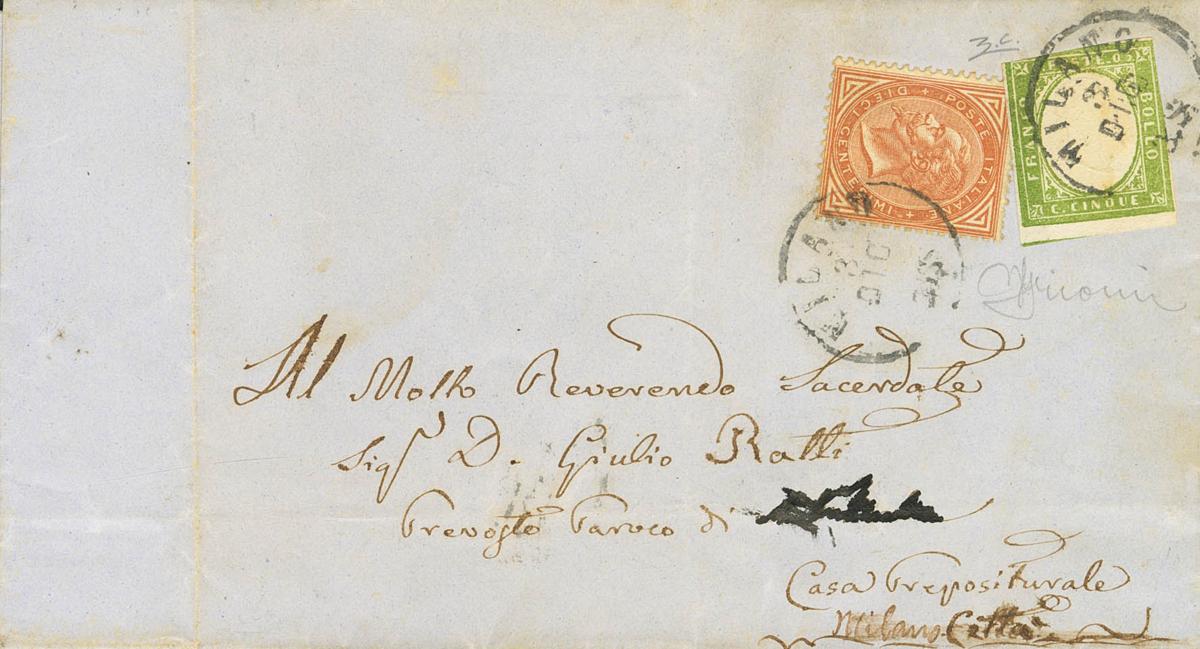 z.c.
POSTE ITALIANE
DIECI CENTESIMI
FRANCO BOLLO
C. CINQUE
MILANO
DIC
MILANO
3
DIC
Al Molto Reverendo Sacerdote
Sigr D. Giulio Ratti
Prevosto Paroco di
Casa Prepositurale
Milano. Città